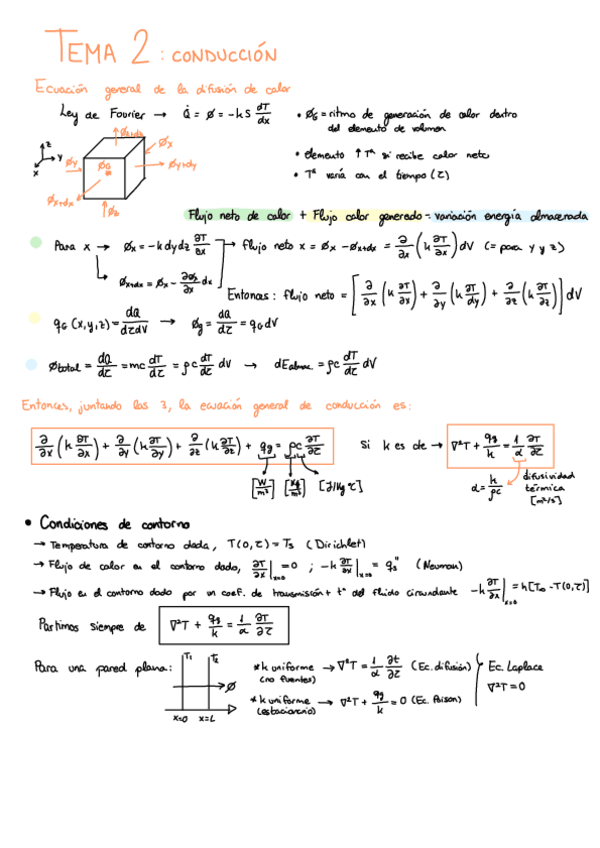 TEMA 2 : CONDUCCIÓN
Ecuación general de la difusión de calor
Ley de Fourier → Q̇ = Ø = -kS dT/dx
• ØG = ritmo de generación de calor dentro
del elemento de volumen
• elemento ↑ Tª si recibe calor neto
• Tª varía con el tiempo (τ)
z y x Øx+dx Øx Øy ØG Øy+dy Øx+dx Øz
Flujo neto de calor + Flujo calor generado = variación energía almacenada
Para x → Øx = -k dydz ∂T/∂x → flujo neto x = Øx - Øx+dx = ∂/∂x (k ∂T/∂x) dV (= para y y z)
Øx+dx = Øx - ∂Øx/∂x dx
Entonces: flujo neto = [∂/∂x (k ∂T/∂x) + ∂/∂y (k ∂T/∂y) + ∂/∂z (k ∂T/∂z)] dV
qG (x,y,z) = dQ/dτdV → Øg = dQ/dτ = qG dV
Øtotal = dQ/dτ = mc dT/dτ = ρc dT/dτ dV → dEalmac. = ρc dT/dτ dV
Entonces, juntando las 3, la ecuación general de conducción es:
∂/∂x (k ∂T/∂x) + ∂/∂y (k ∂T/∂y) + ∂/∂z (k ∂T/∂z) + qg = ρc ∂T/∂τ Si k es de → ∇²T + qg/k = 1/α ∂T/∂τ
[W/m³] [kg/m³] [J/kg τ]
α = k/ρc
difusividad
térmica
[m²/s]
• Condiciones de contorno
→ Temperatura de contorno dada, T(0,τ) = Ts (Dirichlet)
→ Flujo de calor en el contorno dado, ∂T/∂x |x=0 = 0 ; -k ∂T/∂x |x=0 = qs" (Neuman)
→ Flujo en el contorno dado por un coef. de transmisión + tª del fluido circundante -k ∂T/∂x |x=0 = h[T∞ - T(0,τ)]
Partimos siempre de ∇²T + qg/k = 1/α ∂T/∂τ
Para una pared plana: T1 T2 Ø x=0 x=L
* k uniforme → ∇²T = 1/α ∂t/∂τ (Ec. difusión)
(no fuentes)
* k uniforme → ∇²T + qg/k = 0 (Ec. Poison)
(estacionario)
Ec. Laplace
∇²T = 0